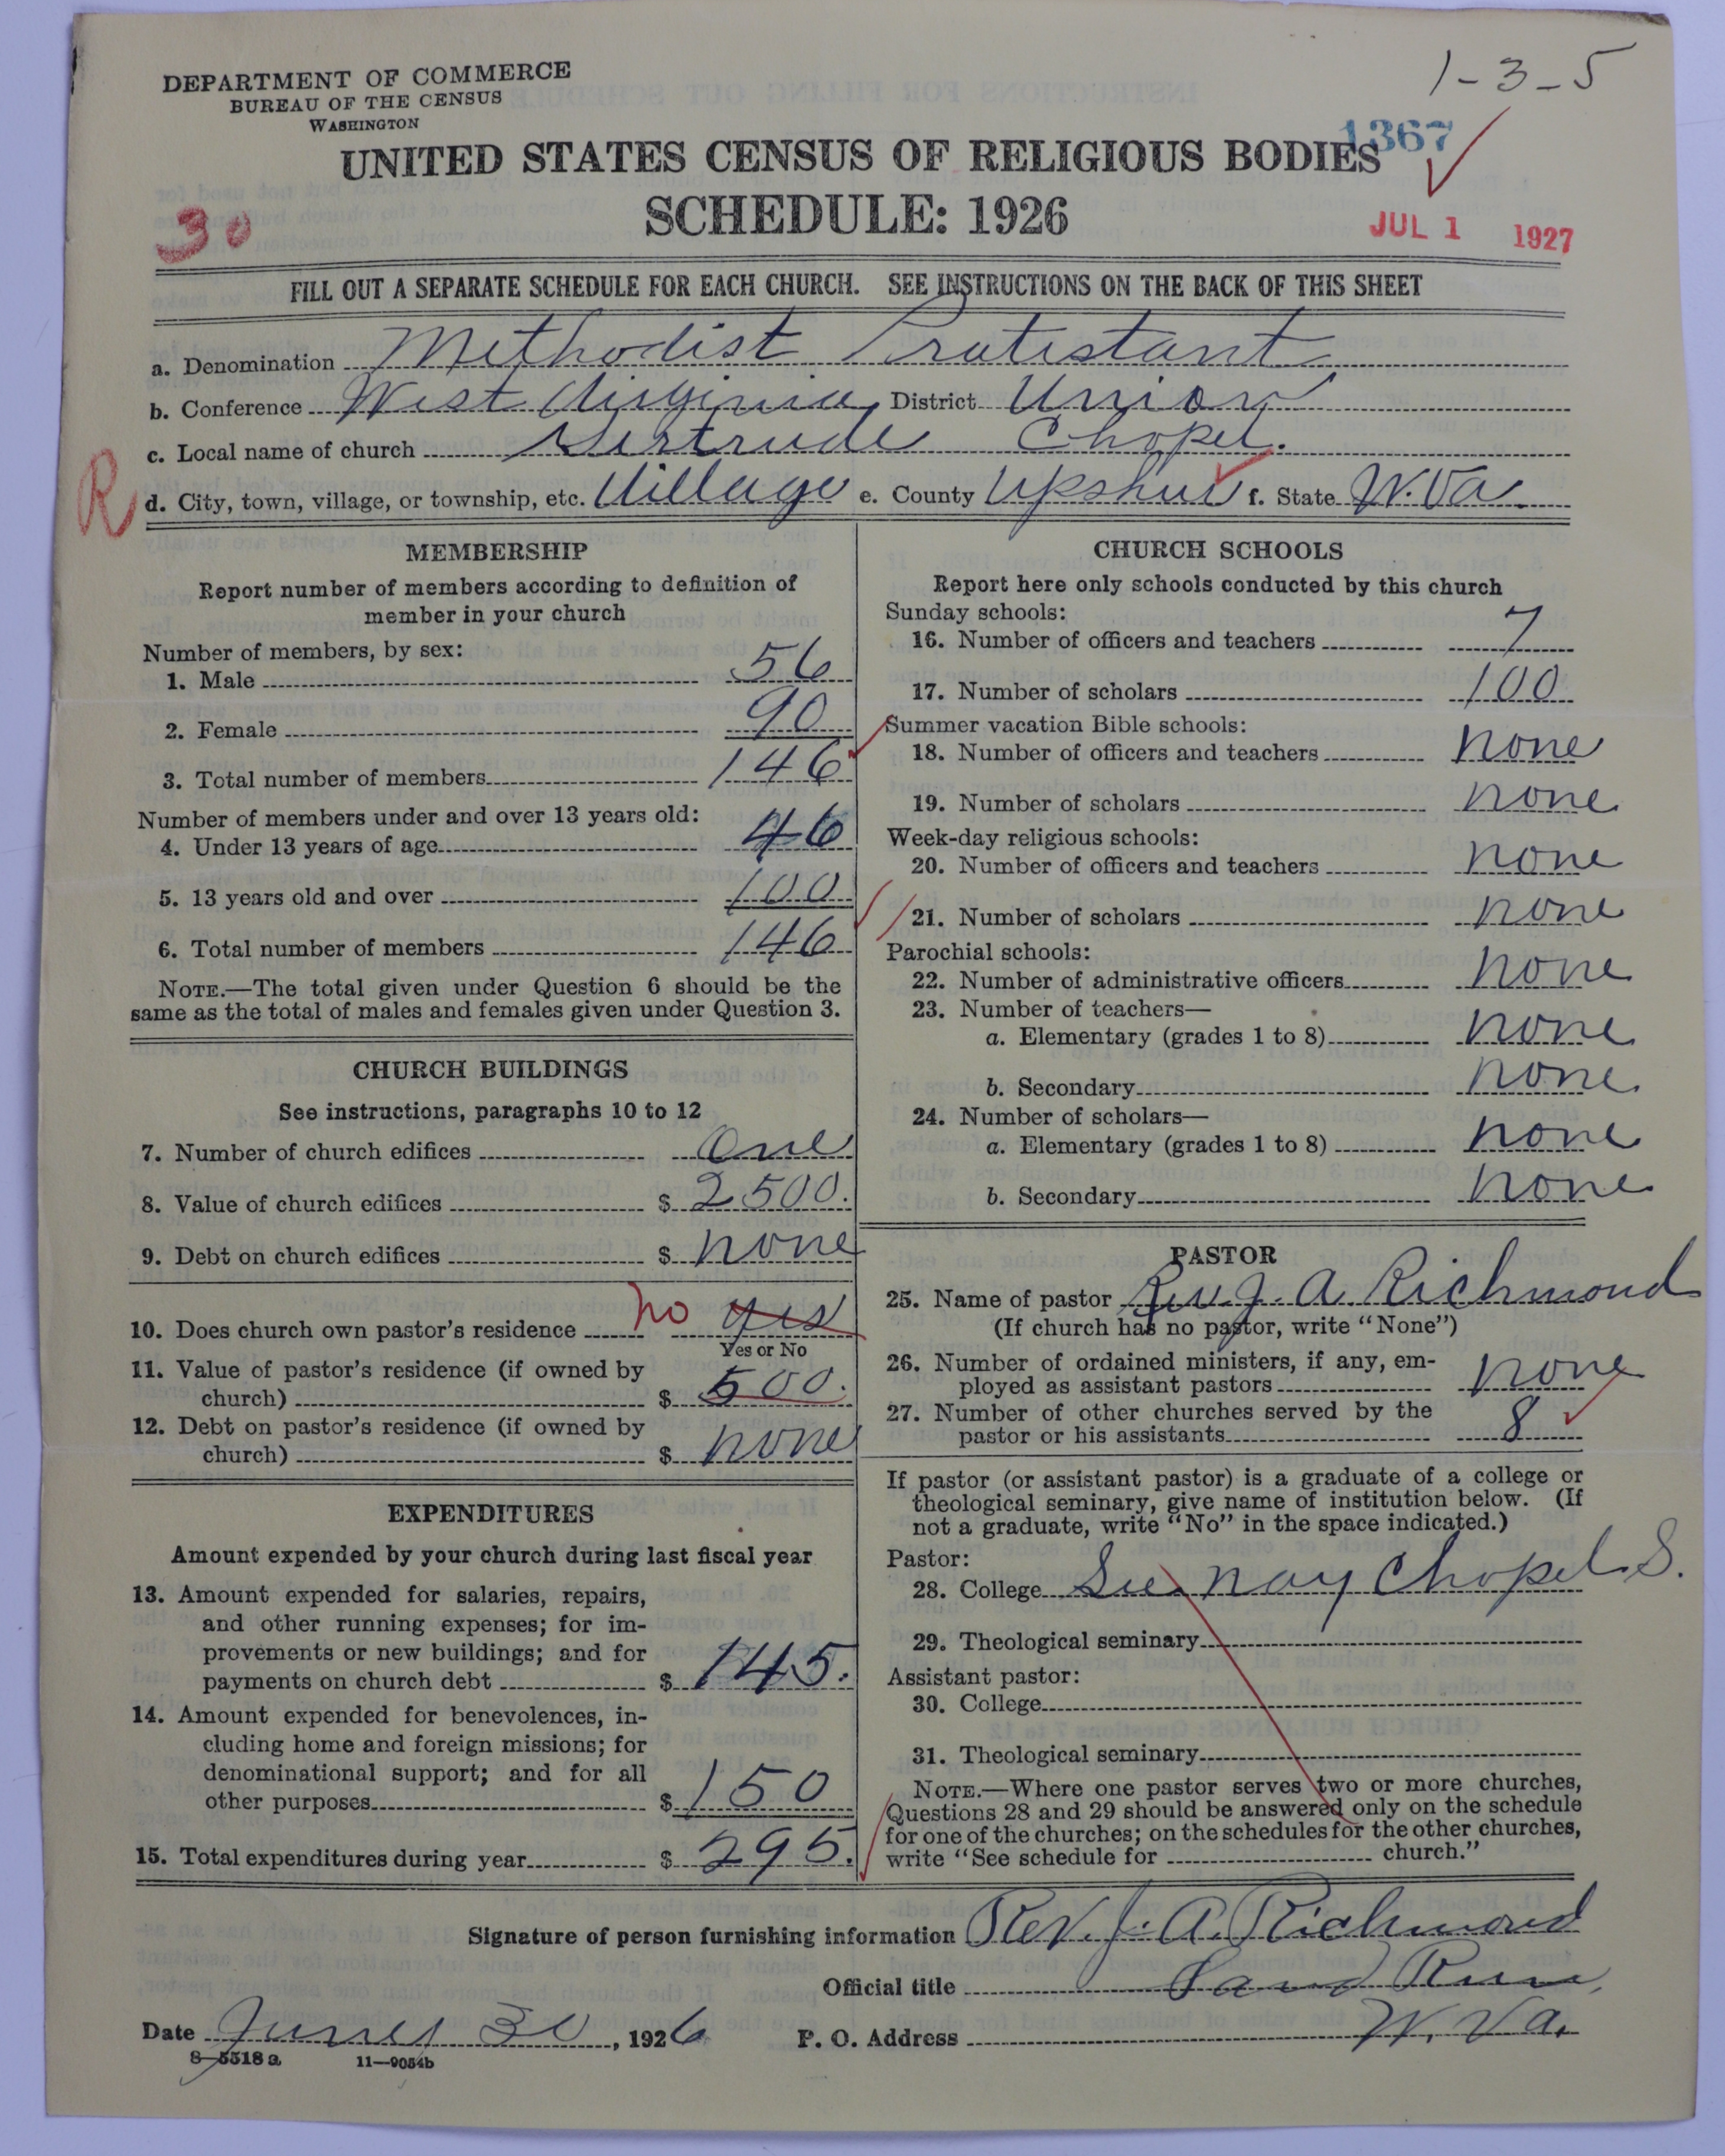 DEPARTMENT OF COMMERCE
BUREAU OF THE CENSUS
WASHINGTON
1-3-5
1367
UNITED STATES CENSUS OF RELIGIOUS BODIES
SCHEDULE: 1926
30
JUL 1 1927
FILL OUT A SEPARATE SCHEDULE FOR EACH CHURCH. SEE INSTRUCTIONS ON THE BACK OF THIS SHEET
a. Denomination Methodist Protestant
b. Conference West Virginia District Union
c. Local name of church Gertrude Chapel.
R
d. City, town, village, or township, etc. Village e. County Upshur f. State W.Va.
MEMBERSHIP
Report number of members according to definition of
member in your church
Number of members, by sex:
1. Male 56
2. Female 90
3. Total number of members 146
Number of members under and over 13 years old:
4. Under 13 years of age 46
5. 13 years old and over 100
6. Total number of members 146
NOTE.—The total given under Question 6 should be the
same as the total of males and females given under Question 3.
CHURCH BUILDINGS
See instructions, paragraphs 10 to 12
7. Number of church edifices One
8. Value of church edifices $ 2500.
9. Debt on church edifices $ none
10. Does church own pastor's residence no yes
Yes or No
11. Value of pastor's residence (if owned by
church) $ 500.
12. Debt on pastor's residence (if owned by
church) $ none
EXPENDITURES
Amount expended by your church during last fiscal year
13. Amount expended for salaries, repairs,
and other running expenses; for im-
provements or new buildings; and for
payments on church debt $ 145.
14. Amount expended for benevolences, in-
cluding home and foreign missions; for
denominational support; and for all
other purposes $ 150
15. Total expenditures during year $ 295.
CHURCH SCHOOLS
Report here only schools conducted by this church
Sunday schools:
16. Number of officers and teachers 7
17. Number of scholars 100
Summer vacation Bible schools:
18. Number of officers and teachers none
19. Number of scholars none
Week-day religious schools:
20. Number of officers and teachers none
21. Number of scholars none
Parochial schools:
22. Number of administrative officers none
23. Number of teachers—
a. Elementary (grades 1 to 8) none
b. Secondary none
24. Number of scholars—
a. Elementary (grades 1 to 8) none
b. Secondary none
PASTOR
25. Name of pastor Rev. J. A. Richmond
(If church has no pastor, write "None")
26. Number of ordained ministers, if any, em-
ployed as assistant pastors none
27. Number of other churches served by the
pastor or his assistants 8
If pastor (or assistant pastor) is a graduate of a college or
theological seminary, give name of institution below. (If
not a graduate, write "No" in the space indicated.)
Pastor:
28. College See Nay Chapel S.
29. Theological seminary
Assistant pastor:
30. College
31. Theological seminary
NOTE.—Where one pastor serves two or more churches,
Questions 28 and 29 should be answered only on the schedule
for one of the churches; on the schedules for the other churches,
write "See schedule for church."
Signature of person furnishing information Rev. J. A. Richmond
Official title Sand Run,
Date 30, 1926 P. O. Address W. Va.
8-5518 a 11—9054b